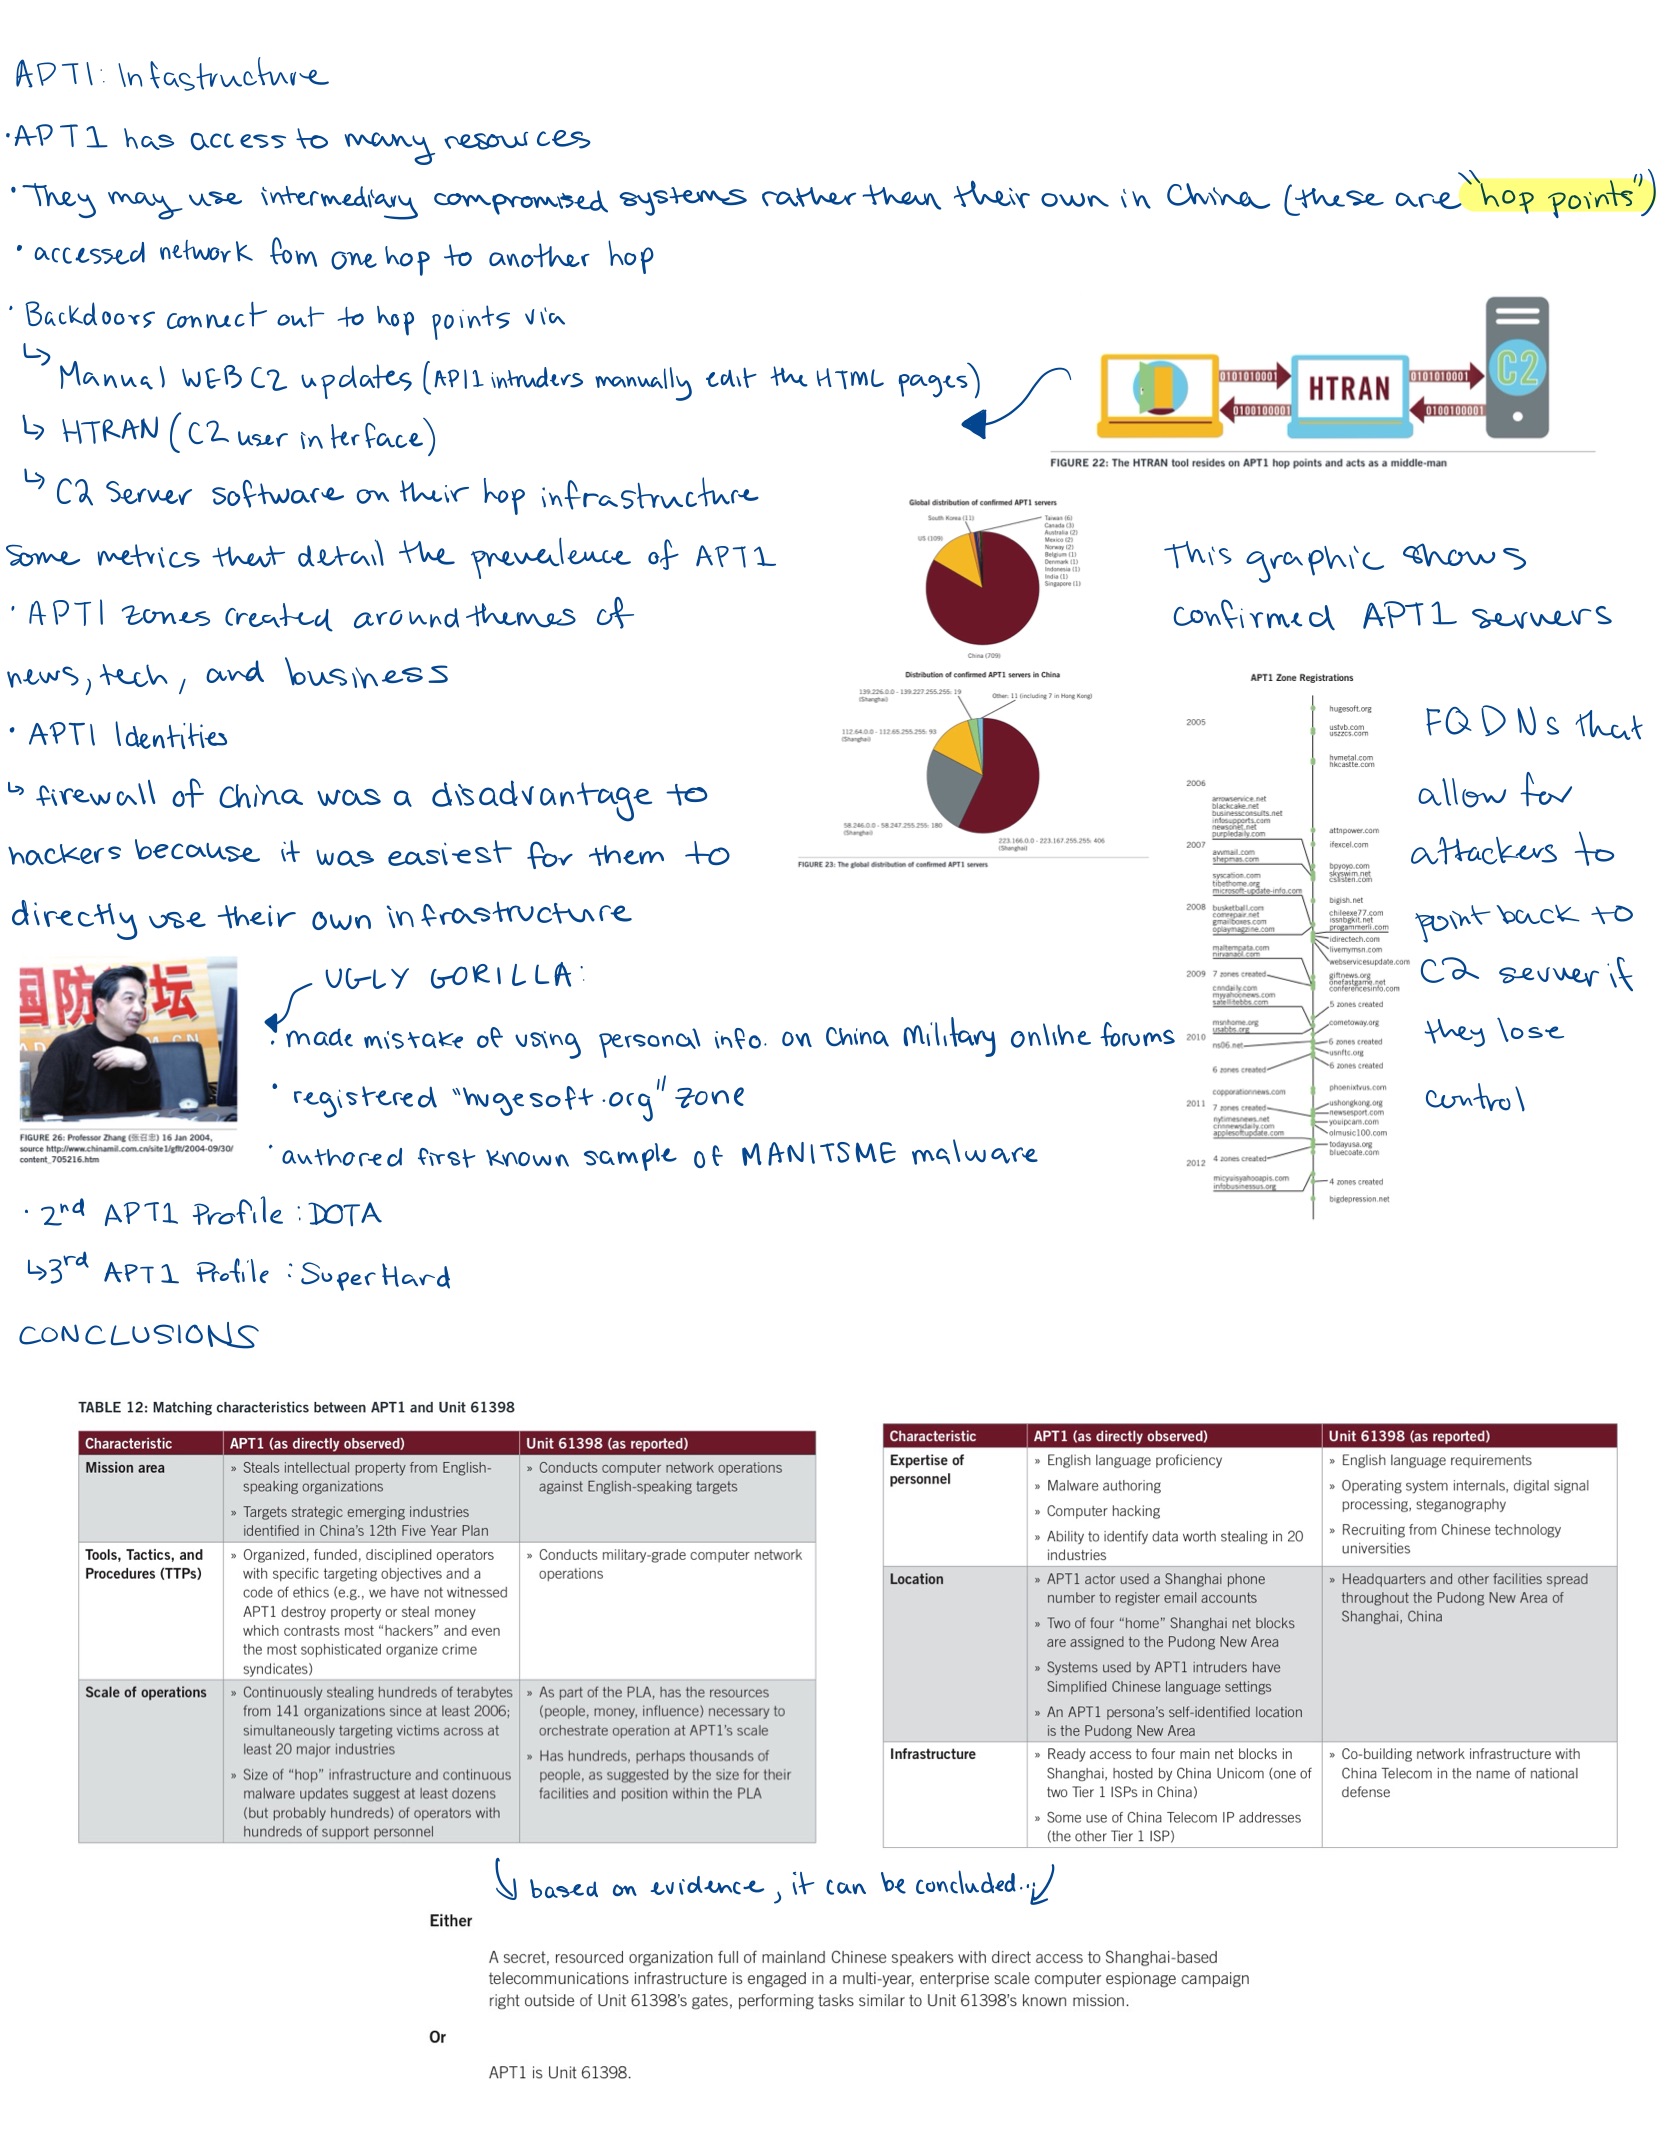 APT1: Infastructure
·APT1 has access to many resources
·They may use intermediary compromised systems rather than their own in China (these are "hop points")
·accessed network fom one hop to another hop
·Backdoors connect out to hop points via
↳ Manual WEB C2 updates (APT1 intruders manually edit the HTML pages)
↳ HTRAN (C2 user interface)
↳ C2 Server software on their hop infrastructure
01010100 HTRAN 01010100 C2
01001000 01001000
FIGURE 22: The HTRAN tool resides on APT1 hop points and acts as a middle-man
Some metrics that detail the prevalence of APT1
·APT1 zones created around themes of
news, tech, and business
·APT1 Identities
↳ firewall of China was a disadvantage to
hackers because it was easiest for them to
directly use their own infrastructure
Global distribution of confirmed APT1 servers
South Korea (11)
US (109)
Taiwan (6)
Canada (3)
Australia (2)
Mexico (2)
Norway (2)
Belgium (1)
Denmark (1)
Indonesia (1)
India (1)
Singapore (1)
China (709)
This graphic shows
confirmed APT1 servers
Distribution of confirmed APT1 servers in China
139.226.0.0 - 139.227.255.255: 19
(Shanghai)
Other: 11 (including 7 in Hong Kong)
112.64.0.0 - 112.65.255.255: 93
(Shanghai)
58.246.0.0 - 58.247.255.255: 180
(Shanghai)
223.166.0.0 - 223.167.255.255: 406
(Shanghai)
FIGURE 23: The global distribution of confirmed APT1 servers
APT1 Zone Registrations
hugesoft.org
2005
ustvb.com
uszzcs.com
hvmetal.com
hkcastte.com
2006
arrowservice.net
blackcake.net
businessconsults.net
infosupports.com
newsonet.net
purpledaily.com
attnpower.com
2007
ifexcel.com
avvmail.com
shepmas.com
bpyoyo.com
skyswim.net
cslisten.com
syscation.com
tibethome.org
microsoft-update-info.com
bigish.net
2008
busketball.com
comrepair.net
gmailboxes.com
oplaymagzine.com
chileexe77.com
issnbgkit.net
progammerli.com
idirectech.com
livemymsn.com
webservicesupdate.com
maltempata.com
nirvanaol.com
2009
7 zones created
giftnews.org
onefastgame.net
conferencesinfo.com
cnndaily.com
myyahoonews.com
satellitebbs.com
5 zones created
msnhome.org
usabbs.org
cometoway.org
2010
ns06.net
6 zones created
usnftc.org
6 zones created
6 zones created
copporationnews.com
phoenixtvus.com
2011
7 zones created
ushongkong.org
newsesport.com
nytimesnews.net
cnnnewsdaily.com
applesoftupdate.com
youipcam.com
olmusic100.com
todayusa.org
bluecoate.com
2012
4 zones created
micyuisyahooapis.com
infobusinessus.org
4 zones created
bigdepression.net
FQDNs that
allow for
attackers to
point back to
C2 server if
they lose
control
国防 坛
FIGURE 26: Professor Zhang (张召忠) 16 Jan 2004,
source http://www.chinamil.com.cn/site1/gflt/2004-09/30/
content_705216.htm
UGLY GORILLA:
·made mistake of using personal info. on China Military online forums
·registered "hugesoft.org" zone
·authored first known sample of MANITSME malware
·2nd APT1 Profile: DOTA
↳3rd APT1 Profile: SuperHard
CONCLUSIONS
TABLE 12: Matching characteristics between APT1 and Unit 61398
Characteristic APT1 (as directly observed) Unit 61398 (as reported)
Mission area
» Steals intellectual property from English-
speaking organizations
» Targets strategic emerging industries
identified in China's 12th Five Year Plan
» Conducts computer network operations
against English-speaking targets
Tools, Tactics, and
Procedures (TTPs)
» Organized, funded, disciplined operators
with specific targeting objectives and a
code of ethics (e.g., we have not witnessed
APT1 destroy property or steal money
which contrasts most "hackers" and even
the most sophisticated organize crime
syndicates)
» Conducts military-grade computer network
operations
Scale of operations
» Continuously stealing hundreds of terabytes
from 141 organizations since at least 2006;
simultaneously targeting victims across at
least 20 major industries
» Size of "hop" infrastructure and continuous
malware updates suggest at least dozens
(but probably hundreds) of operators with
hundreds of support personnel
» As part of the PLA, has the resources
(people, money, influence) necessary to
orchestrate operation at APT1's scale
» Has hundreds, perhaps thousands of
people, as suggested by the size for their
facilities and position within the PLA
Characteristic APT1 (as directly observed) Unit 61398 (as reported)
Expertise of
personnel
» English language proficiency
» Malware authoring
» Computer hacking
» Ability to identify data worth stealing in 20
industries
» English language requirements
» Operating system internals, digital signal
processing, steganography
» Recruiting from Chinese technology
universities
Location
» APT1 actor used a Shanghai phone
number to register email accounts
» Two of four "home" Shanghai net blocks
are assigned to the Pudong New Area
» Systems used by APT1 intruders have
Simplified Chinese language settings
» An APT1 persona's self-identified location
is the Pudong New Area
» Headquarters and other facilities spread
throughout the Pudong New Area of
Shanghai, China
Infrastructure
» Ready access to four main net blocks in
Shanghai, hosted by China Unicom (one of
two Tier 1 ISPs in China)
» Some use of China Telecom IP addresses
(the other Tier 1 ISP)
» Co-building network infrastructure with
China Telecom in the name of national
defense
based on evidence, it can be concluded...
Either
A secret, resourced organization full of mainland Chinese speakers with direct access to Shanghai-based
telecommunications infrastructure is engaged in a multi-year, enterprise scale computer espionage campaign
right outside of Unit 61398's gates, performing tasks similar to Unit 61398's known mission.
Or
APT1 is Unit 61398.